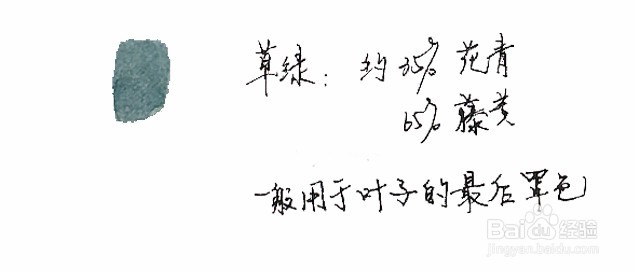 草绿：约35% 花青
65% 藤黄
一般用于叶子的最后罩色
Baidu经验
jingyan.baidu.com